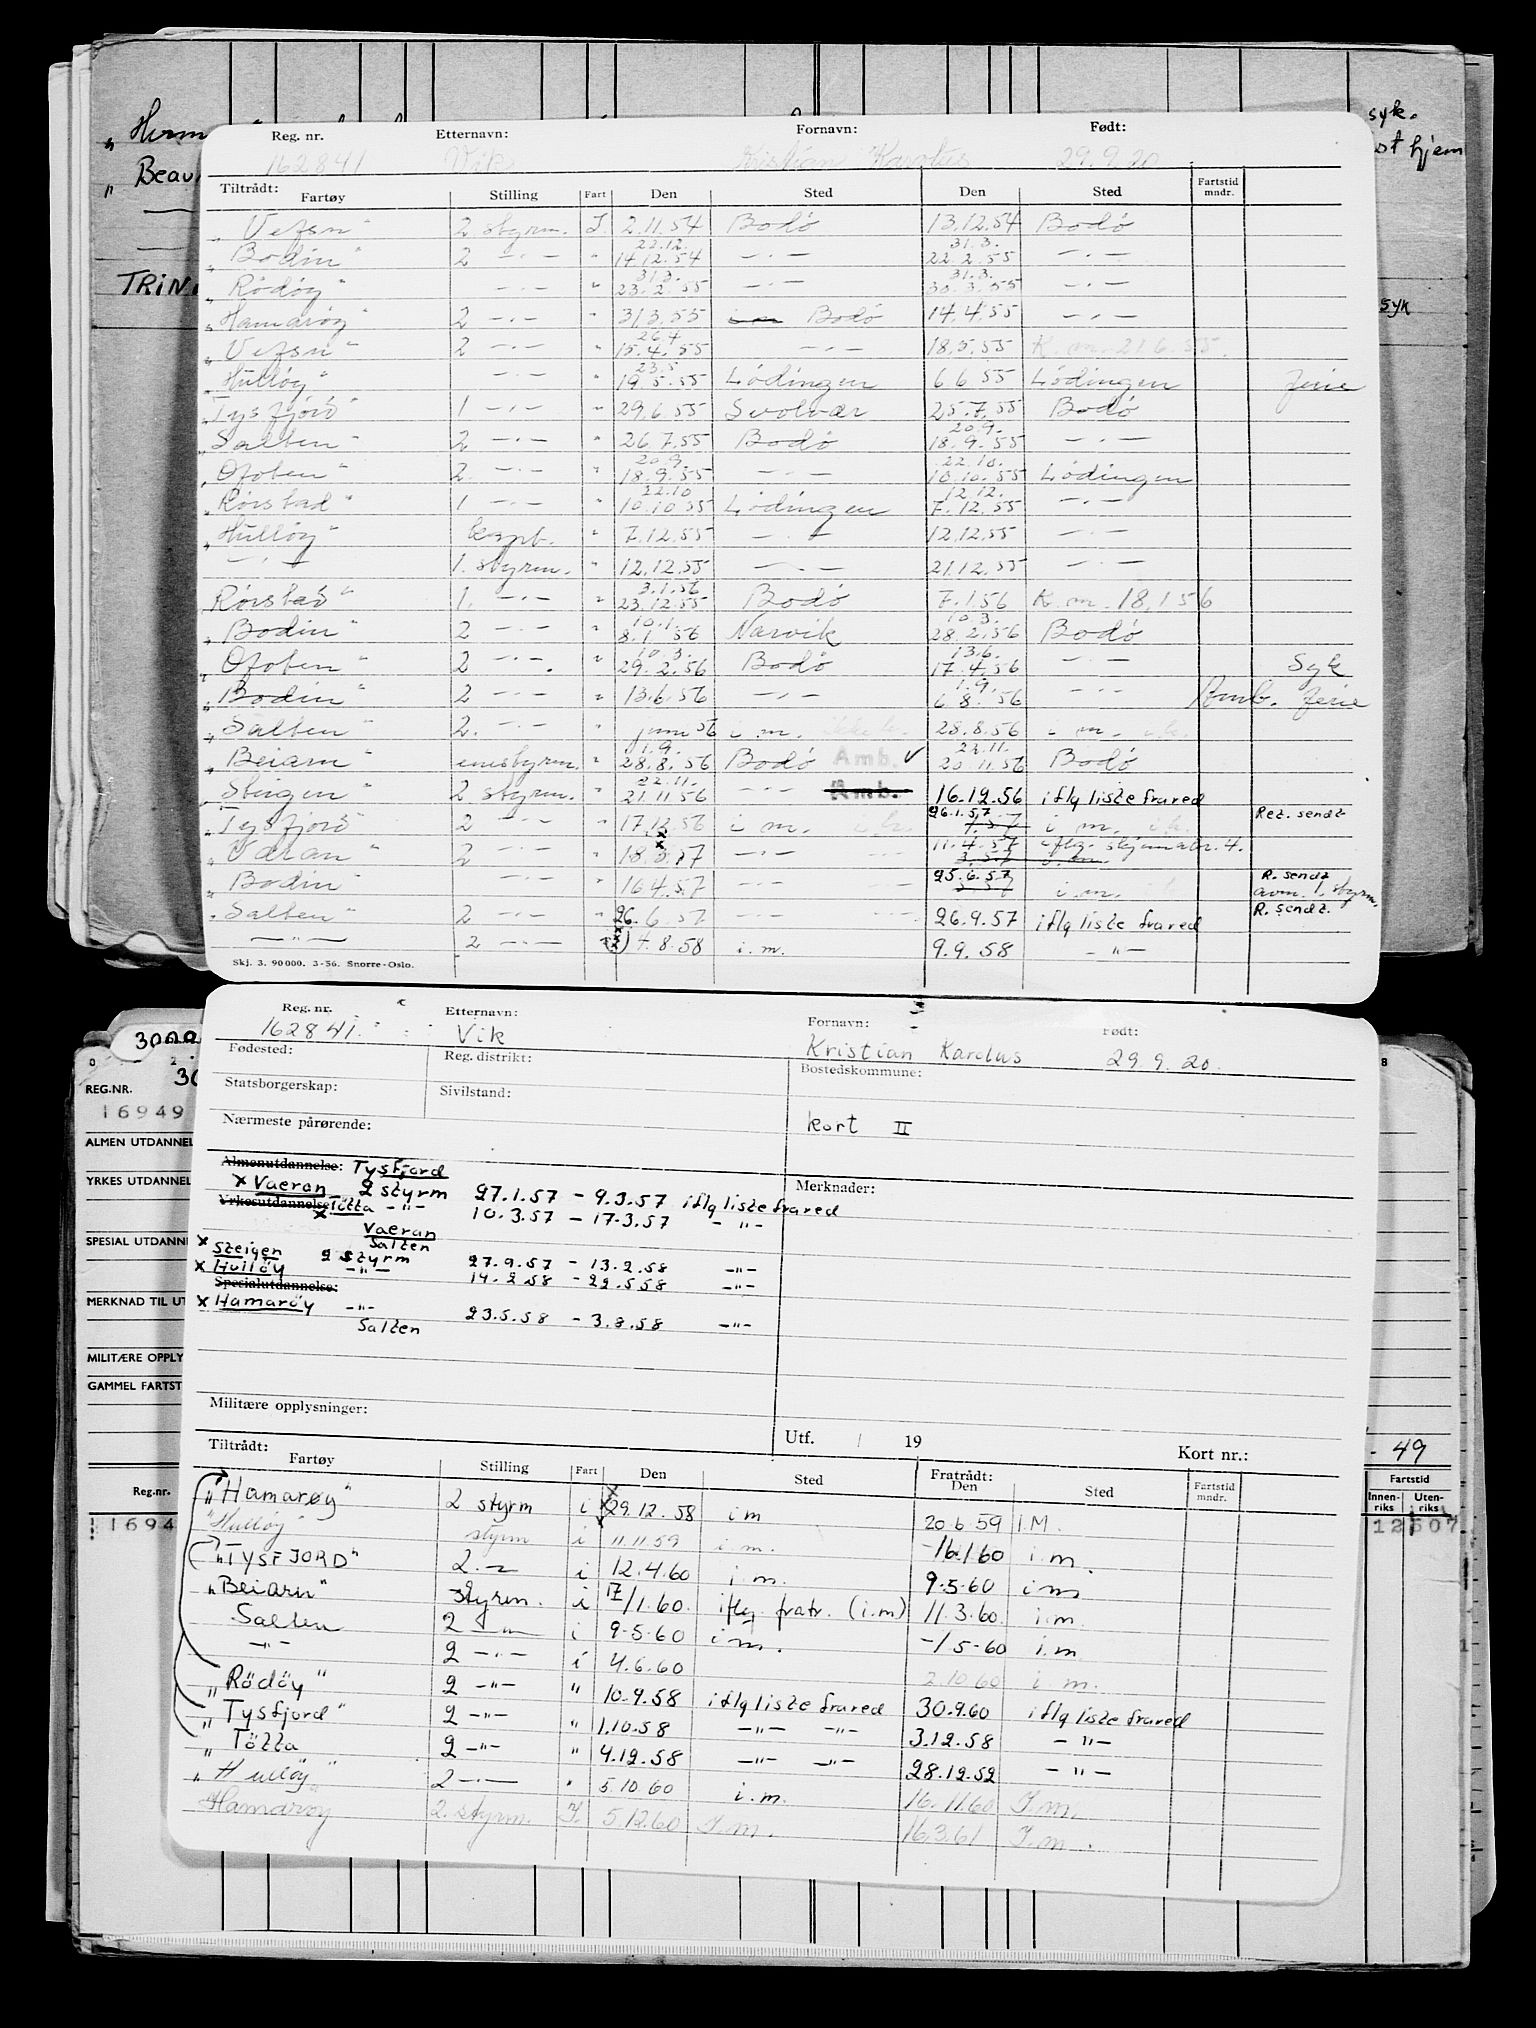 „ Herm
syk.
„ Beau
st hjem
TRIN
syk
Reg. nr. Etternavn: Fornavn: Født:
162841 Vik Kristian Karolus 29.9.20
Tiltrådt: Fartøy Stilling Fart Den Sted Den Sted Fartstid mndr.
„Vefsn" 2 styrm. I. 2.11.54 Bodö 13.12.54 Bodö
22.12. 31.3.
„Bodin" 2 —·— " 14.12.54 —·— 22.2.55 —·—
31.3. 31.3.
„Rödöy" " 23.2.55 —·— 30.3.55 —·—
„Hamaröy" 2 —·— " 31.3.55 i m Bodö 14.4.55 —·—
26.4
„Vefsn" 2 —·— " 15.4.55 —·— 18.5.55 K. m. 21.6.55.
23.5
„Hullöy" —·— " 19.5.55 Lödingen 6.6.55 Lödingen ferie
„Tysfjord" 1 —·— " 29.6.55 Svolvær 25.7.55 Bodö
20.9.
„Salten" 2 —·— " 26.7.55 Bodö 18.9.55 —·—
20.9. 22.10.
„Ofoten" 2. —·— " 18.9.55 —·— 10.10.55 Lödingen
22.10 12.12.
„Rörstad" 1 —·— " 10.10.55 Lödingen 7.12.55 —·—
„Hullöy" " 7.12.55 —·— 12.12.55 —·—
—·— 1. styrm. " 12.12.55 —·— 21.12.55 —·—
3.1.56
Rörstad" 1. —·— " 23.12.55 Bodö 7.1.56 K. m. 18.1.56
10.1. 10.3.
„Bodin" 2 —·— " 8.1.56 Narvik 28.2.56 Bodö
10.3. 13.6.
„Ofoten" 2 —·—. " 29.2.56 Bodö 17.4.56 —·— Syk
1.9.
„Bodin" 2 —·— " 13.6.56 —·— 6.8.56 —·— Amb. ferie
„Salten" 2. —·— " juni 56 i m. 28.8.56 i m.
1.9. 22.11.
„Beiarn" enestyrm. " 28.8.56 Bodö Amb. ✓ 20.11.56 Bodö
22.11.
„Steigen" 2 styrm. " 21.11.56 —·— Amb. 16.12.56 iflg liste fra red
„Tysfjord" 2 —·— " 17.12.56 i m. 26.1.57 i m. Ret. sendt
„Væran" 2 —·— " 18.3.57 —·— 11.4.57 iflg. skjema nr. 4.
„Bodin" —·— " 16.4.57 —·— 25.6.57 i.m. R. sendt
avm. 1. styrm.
„Salten" 2 —·— " 26.6.57 —·— 26.9.57 iflg liste fra red R. sendt.
—"— 2 —·— 4.8.58 i.m. 9.9.58 —"—
Skj. 3. 90000. 3-56. Snorre-Oslo.
Reg. nr. Etternavn: Fornavn: Født:
162841. Vik Kristian Karolus 29.9.20.
Fødested: Reg. distrikt: Bostedskommune:
Statsborgerskap: Sivilstand:
Nærmeste pårørende: kort II
Almenutdannelse: Tysfjord
x Vaeran 2 styrm 27.1.57 – 9.3.57 iflg liste fra red
Merknader:
Yrkesutdannelse: x Tötta –"– 10.3.57 – 17.3.57 –"–
Vaeran
Salten
x Steigen 2 styrm 27.9.57 – 13.2.58 –"–
x Hullöy –"– 14.2.58 – 22.5.58 –"–
Spesialutdannelse:
x Hamaröy –"– 23.5.58 – 3.8.58 –"–
Salten
Militære opplysninger:
Utf. / 19 Kort nr.:
Tiltrådt: Fartøy Stilling Fart Den Sted Fratrådt: Den Sted Fartstid mndr.
„Hamarøy" 2 styrm i 29.12.58 i m 20.6.59 I.M.
"Hulløy" styrm i 11.11.59 i.m. –16.1.60 i.m.
„TYSFJORD" 2.– i 12.4.60 i.m. 9.5.60 i m
„Beiarn" styrm. i /1.60. iflg. fratr. (i.m) 11.3.60. i.m.
Salten 2 —"— i 9-5-60 i m. –/5-60 i.m
–"– 2 –·– i 4.6.60 2.10.60 i m.
„Rödöy" 2 –"– " 10.9.58 iflg liste fra red 30.9.60 iflg liste fra red
„Tysfjord" 2 –"– " 1.10.58 –"– –"– 3.12.58 –"–
„Tötta 2 –"– " 4.12.58 –"– –"– 28.12.52 –"–
„Hulløy" 2 –·– " 5.10.60 i.m. 16.11.60 I.m.
Hamarøy 2. styrm. I. 5.12.60 I.m. 16.3.61 I.m.
REG.NR.
16949
ALMEN UTDANNEL
YRKES UTDANNEL
SPESIAL UTDANN
MERKNAD TIL UT
MILITÆRE OPPLY
GAMMEL FARTST
Reg.nr.
1694
- 49
Fartstid
Innenriks Utenriks
12507